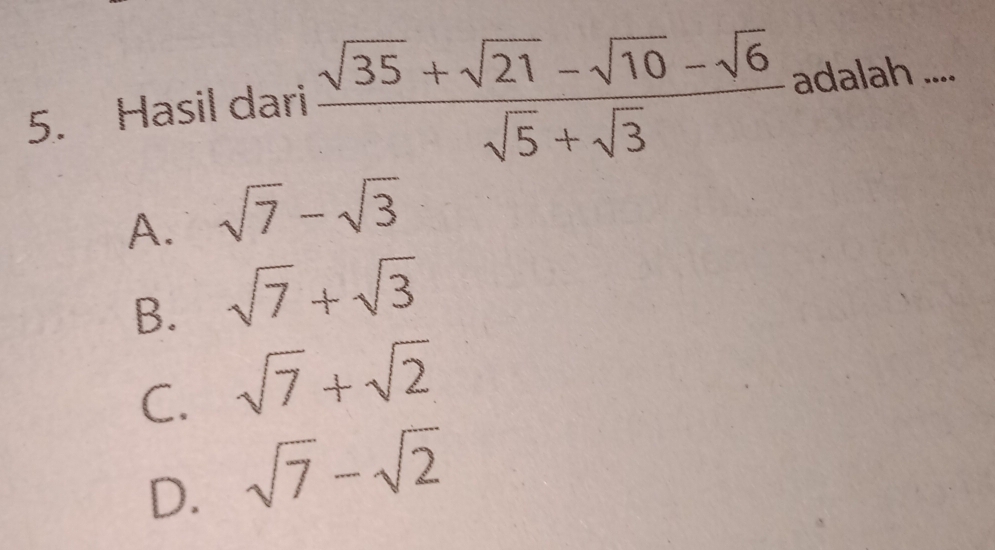 5. Hasil dari (√35 + √21 − √10 − √6)/(√5 + √3) adalah ....
A. √7 − √3
B. √7 + √3
C. √7 + √2
D. √7 − √2